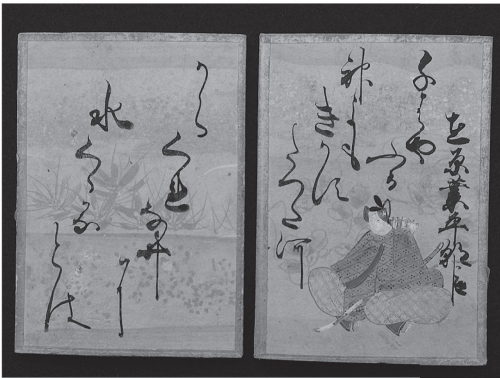 在原業平朝臣
千はや
ふる
神よも
きかす
たつた河
から
くれなゐ
に
水
くゝる
とは